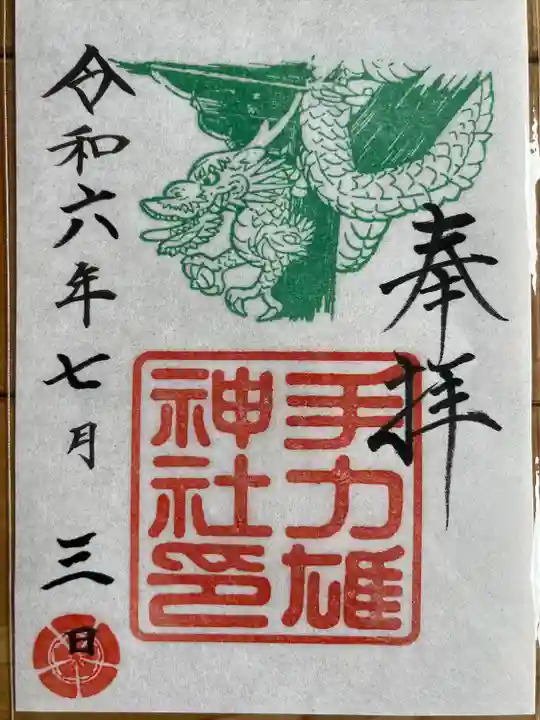 奉拝
手力雄
神社印
令和六年七月三日